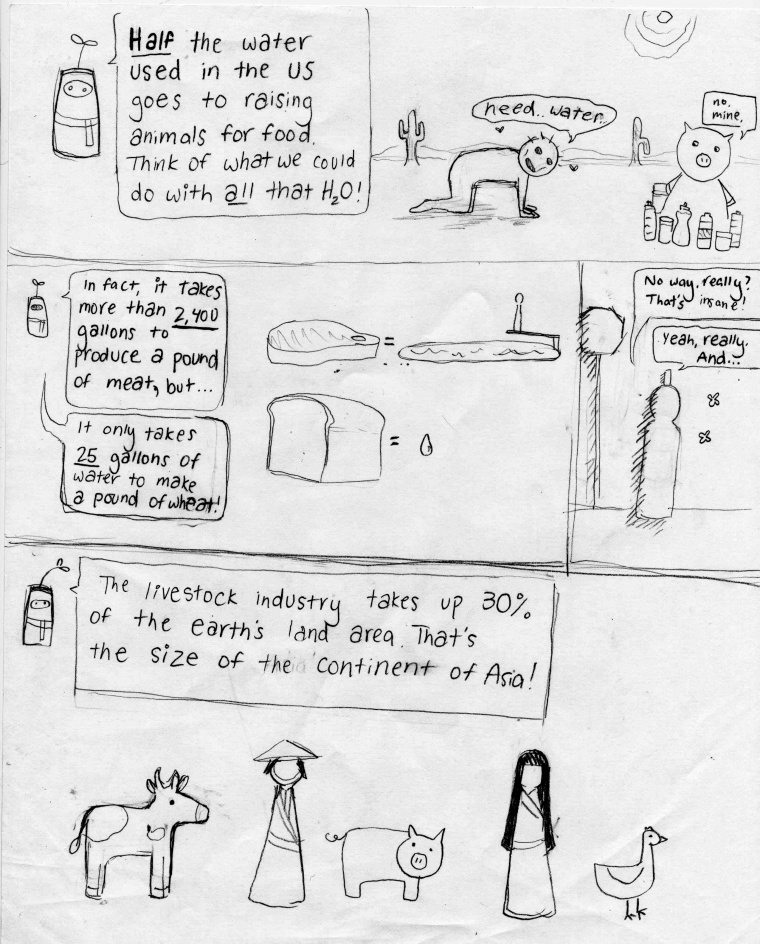 Half the water
used in the US
goes to raising
animals for food.
Think of what we could
do with all that H₂O!
need..water..
no.
mine.
In fact, it takes
more than 2,400
gallons to
produce a pound
of meat, but...
It only takes
25 gallons of
water to make
a pound of wheat!
=
=
No way, really?
That's insane!
Yeah, really.
And...
The livestock industry takes up 30%
of the earth's land area. That's
the size of the continent of Asia!